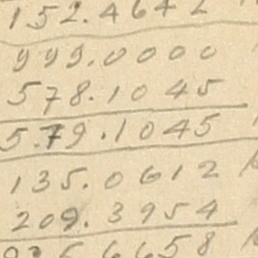 152.4642
999.0000
578.1045
5.79.1045
135.0612
209.3954